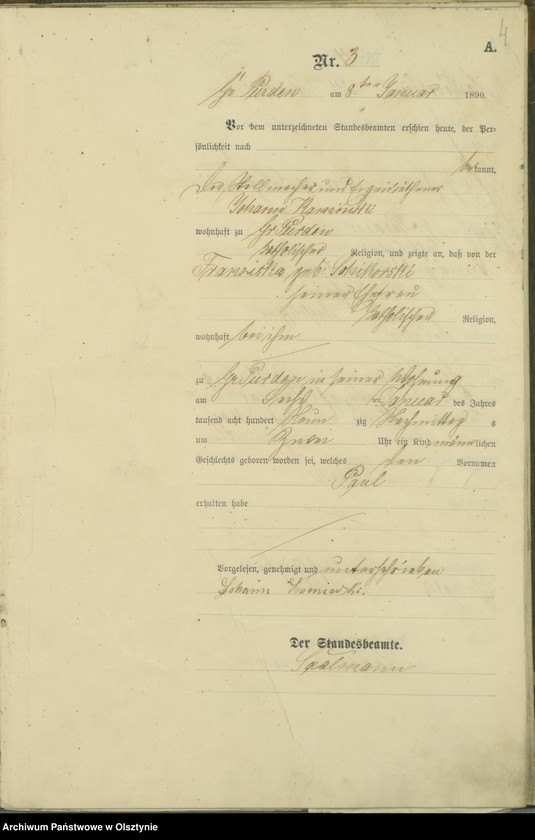 4
A.
Nr. 3
Gr Purden am 8ten Januar 1890.
Vor dem unterzeichneten Standesbeamten erschien heute, der Per-
sönlichkeit nach
bekannt,
der Stellmacher und Eigenkäthner
Johann Kaminski
wohnhaft zu Gr Purden
katholischer Religion, und zeigte an, daß von der
Franziska geb.
seiner Ehefrau
katholischer Religion,
wohnhaft bei ihm
zu Gr Purden in seiner Wohnung
am Sechs ten Januar des Jahres
tausend acht hundert Neun zig Nachmittag s
um Zwei Uhr ein Kind männlichen
Geschlechts geboren worden sei, welches den Vornamen
Paul
erhalten habe
Vorgelesen, genehmigt und unterschrieben
Johann Kaminski.
Der Standesbeamte.
Saalmann
Archiwum Państwowe w Olsztynie